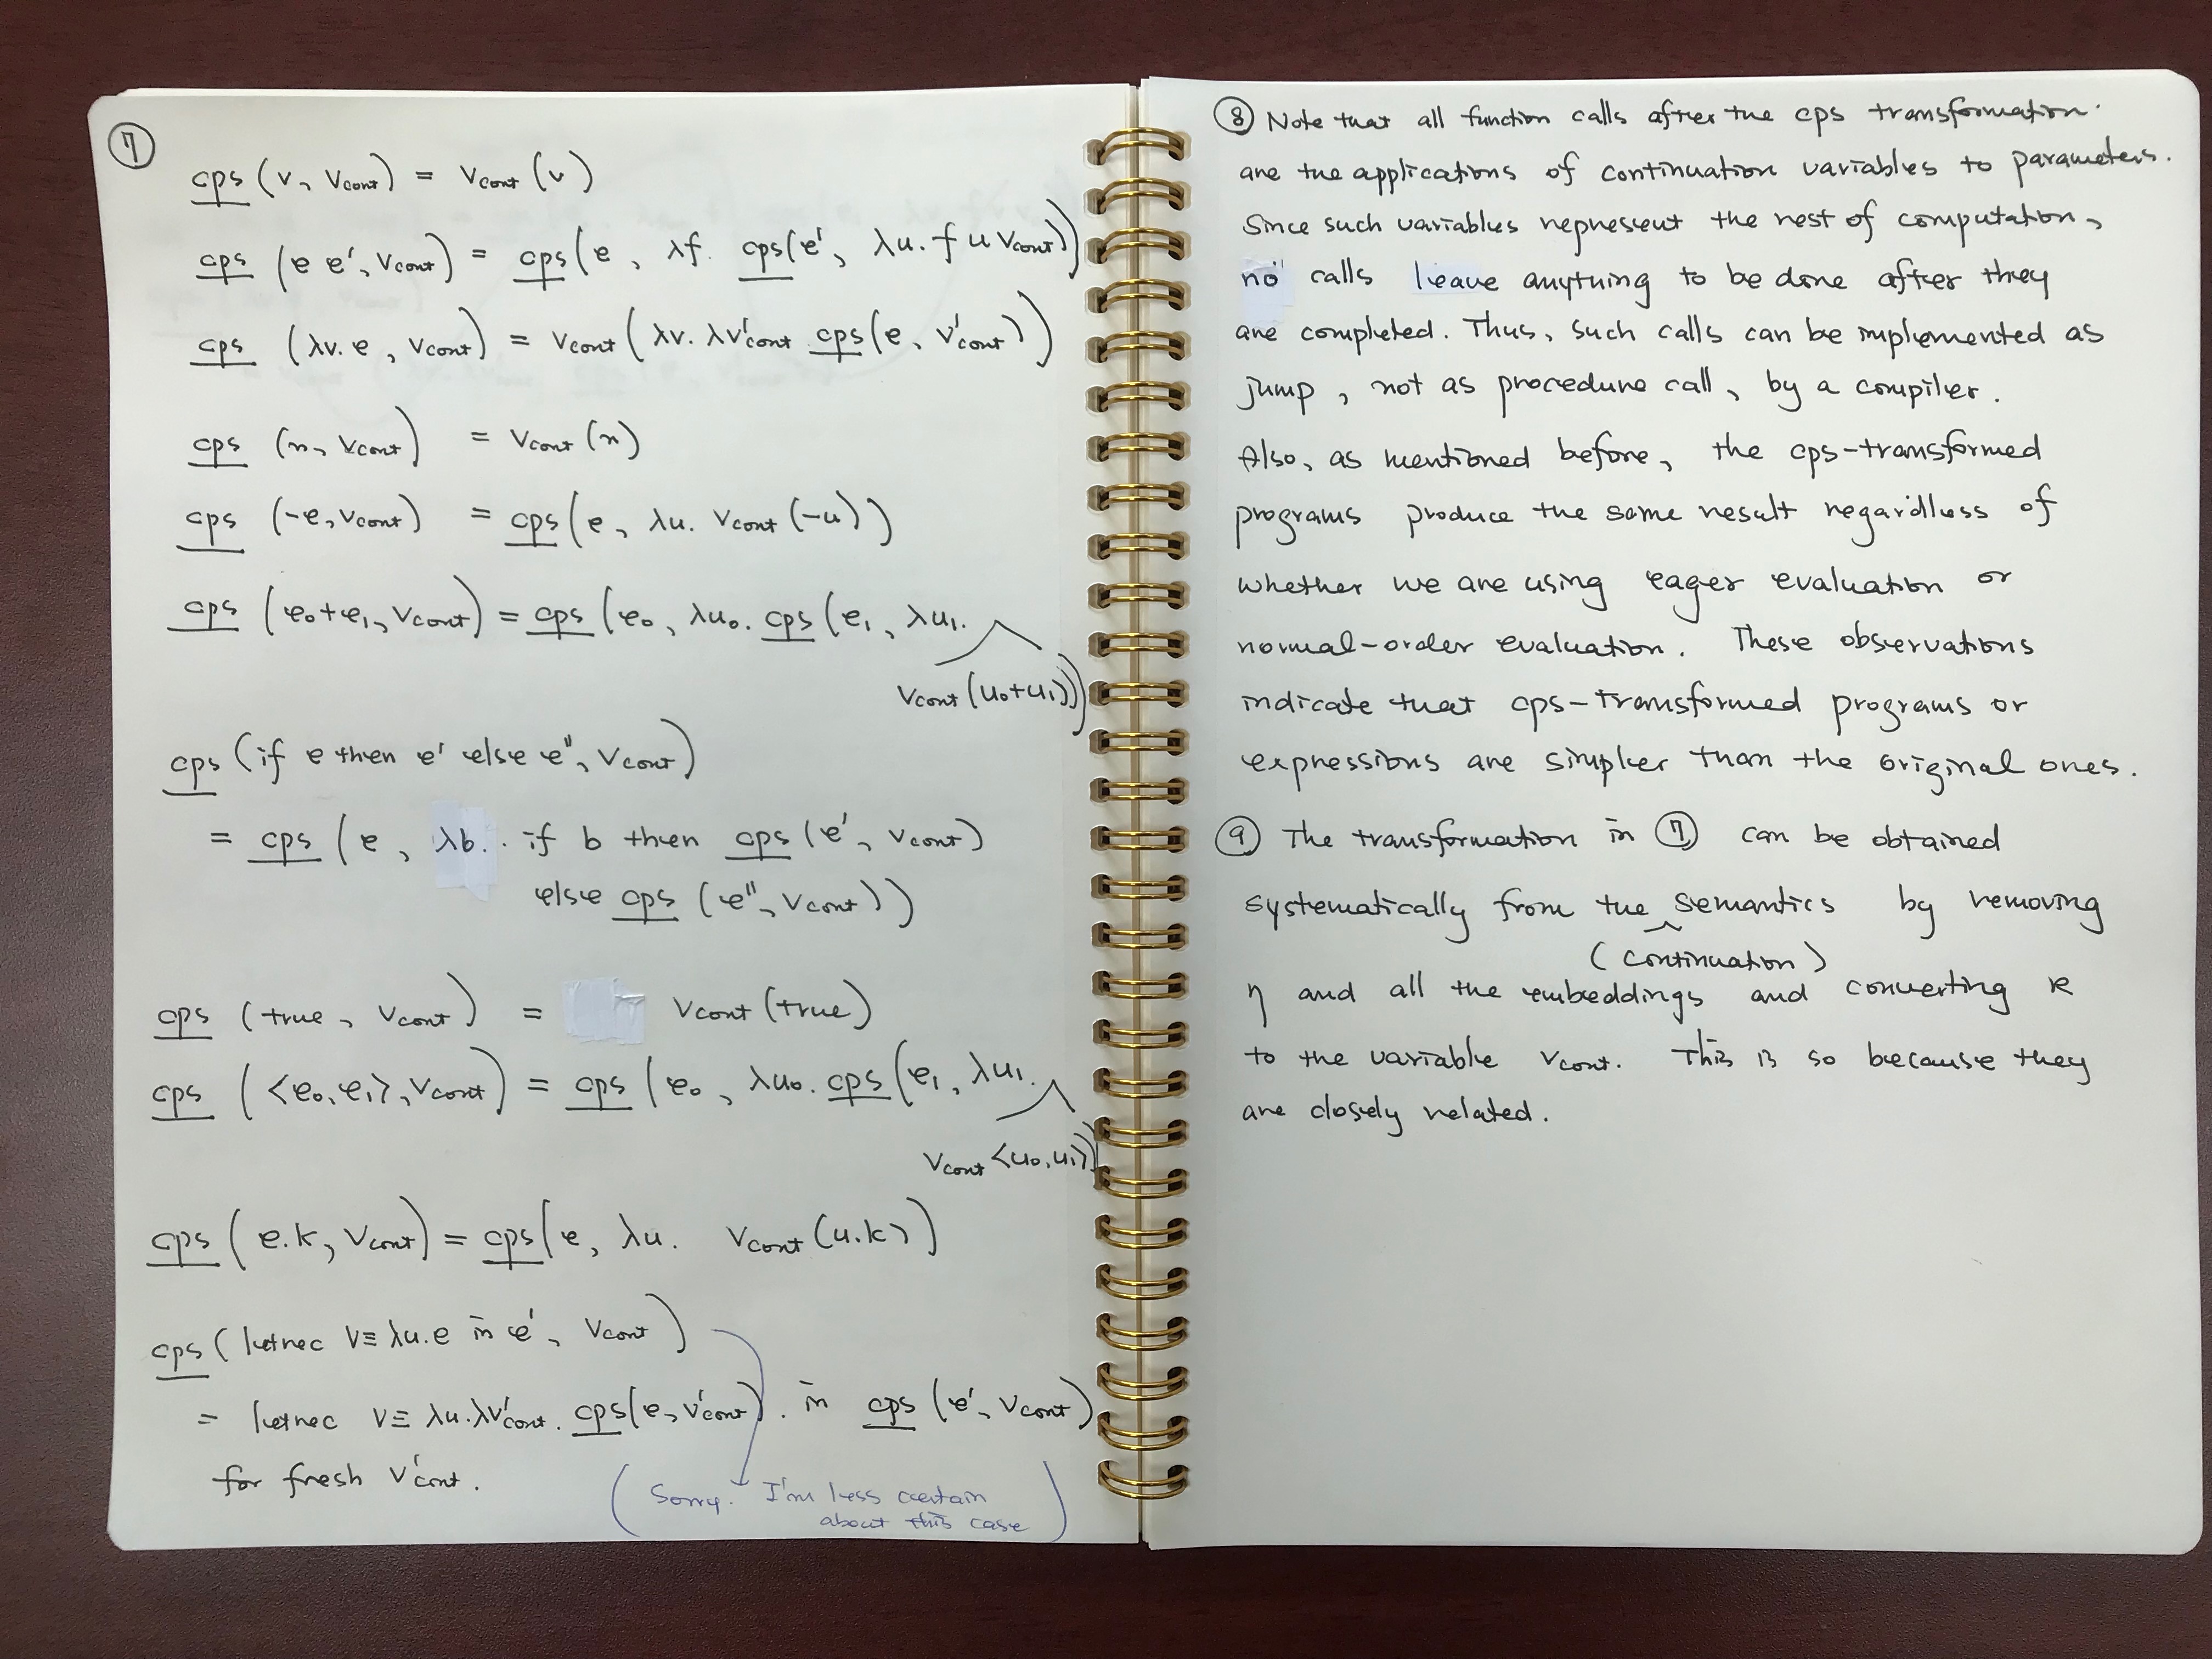 ⑦
cps (v, Vcont) = Vcont (v)
cps (e e', Vcont) = cps (e, λf. cps (e', λu. f u Vcont))
cps (λv. e, Vcont) = Vcont (λv. λV'cont. cps (e, V'cont))
cps (n, Vcont) = Vcont (n)
cps (-e, Vcont) = cps (e, λu. Vcont (-u))
cps (e₀+e₁, Vcont) = cps (e₀, λu₀. cps (e₁, λu₁.
Vcont (u₀+u₁)))
cps (if e then e' else e'', Vcont)
= cps (e, λb. if b then cps (e', Vcont)
else cps (e'', Vcont))
cps (true, Vcont) = Vcont (true)
cps (<e₀, e₁>, Vcont) = cps (e₀, λu₀. cps (e₁, λu₁.
Vcont <u₀, u₁>))
cps (e.k, Vcont) = cps (e, λu. Vcont (u.k))
cps (letrec V ≡ λu.e in e', Vcont)
= letrec V ≡ λu. λV'cont. cps (e, V'cont). in cps (e', Vcont)
for fresh V'cont.
(Sorry. I'm less certain
about this case)
⑧ Note that all function calls after the cps transformation
are the applications of continuation variables to parameters.
Since such variables represent the rest of computation,
no calls leave anything to be done after they
are completed. Thus, such calls can be implemented as
jump, not as procedure call, by a compiler.
Also, as mentioned before, the cps-transformed
programs produce the same result regardless of
whether we are using eager evaluation or
normal-order evaluation. These observations
indicate that cps-transformed programs or
expressions are simpler than the original ones.
⑨ The transformation in ⑦ can be obtained
systematically from the semantics by removing
(continuation)
η and all the embeddings and converting κ
to the variable Vcont. This is so because they
are closely related.